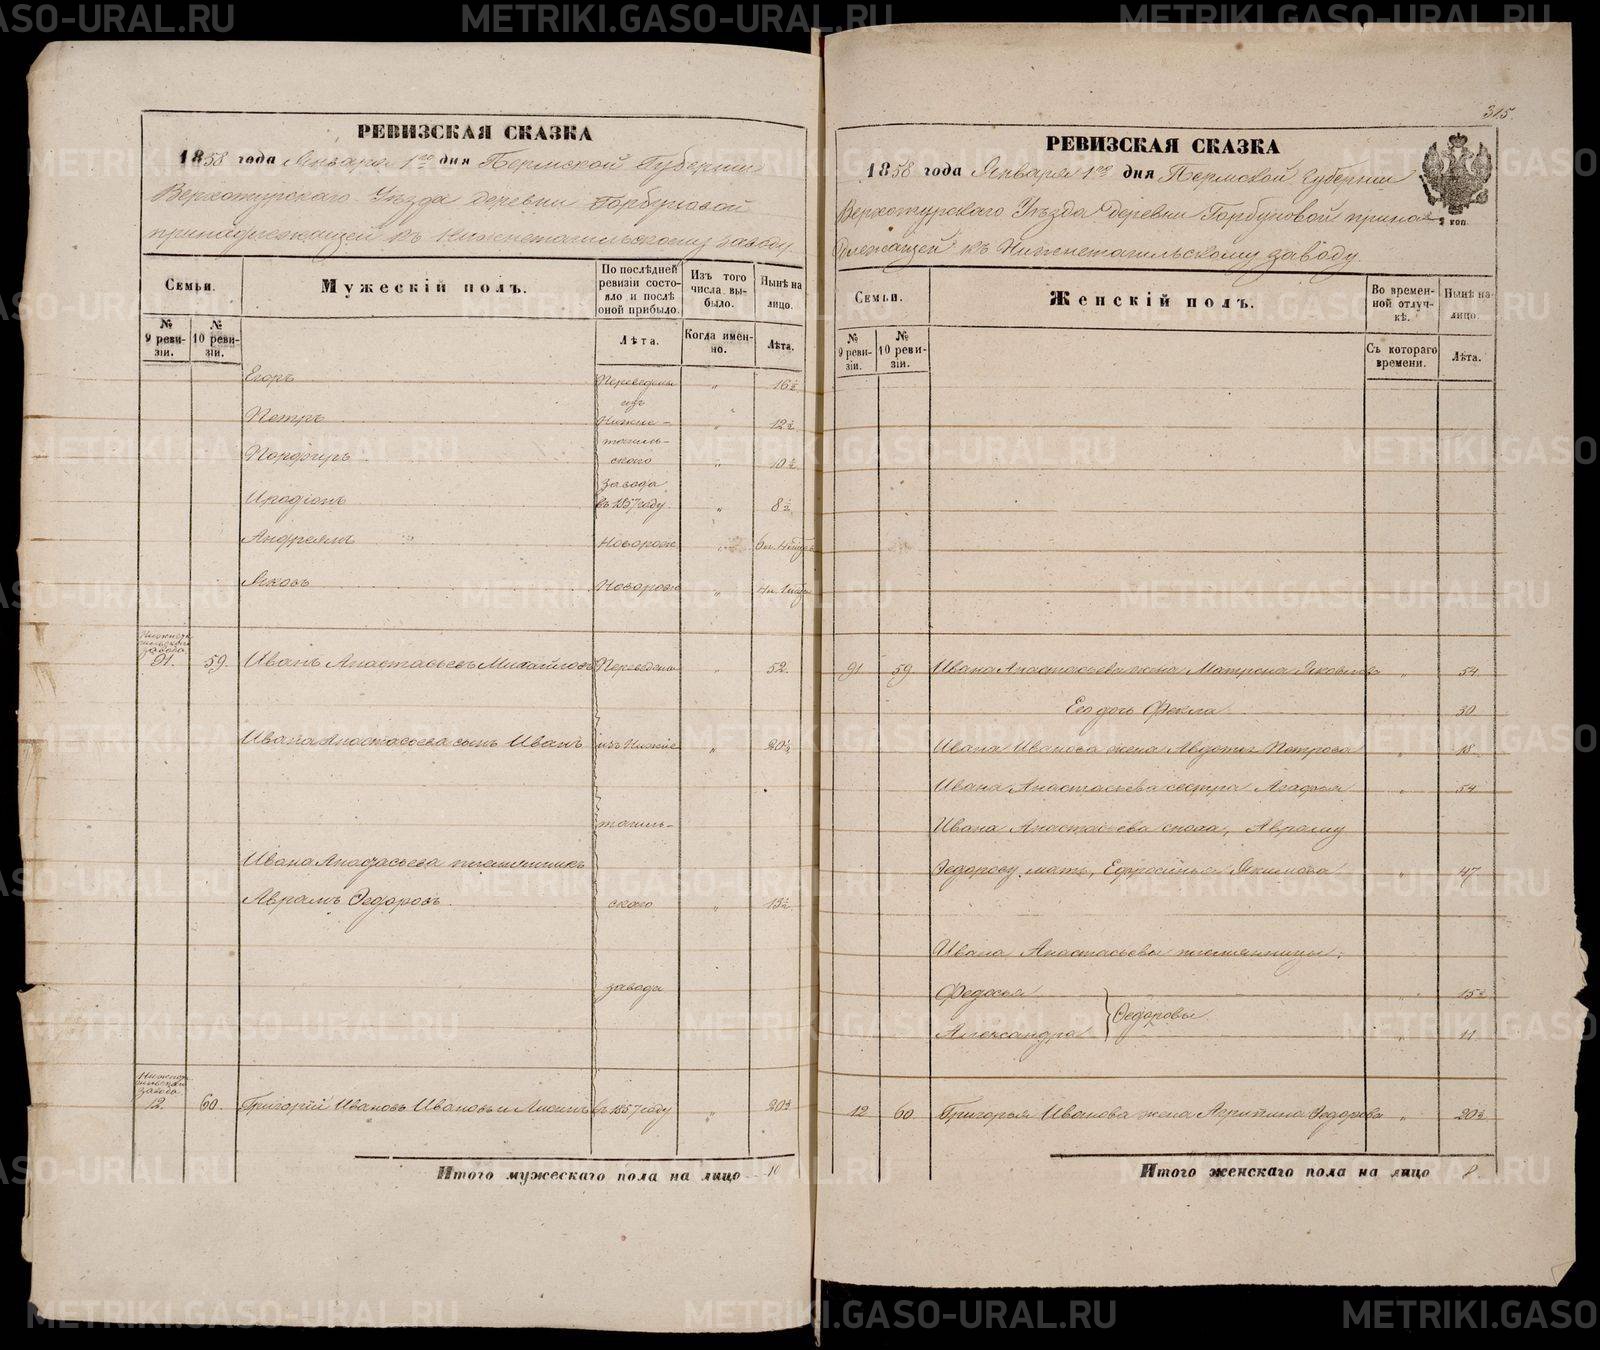 РЕВИЗСКАЯ СКАЗКА
1858 года Января 1го дня Пермской Губернии
Верхотурскаго Уѣзда деревни Горбуновой
принадлежащей къ Нижнетагильскому заводу.
Семьи.
Мужескій полъ.
По послѣдней ревизіи состояло и послѣ оной прибыло.
Изъ того числа выбыло.
Нынѣ на лицо.
№ 9 ревизіи.
№ 10 ревизіи.
Лѣта.
Когда именно.
Лѣта.
Егоръ Переведены 16½
изъ
Петръ Нижне- 12½
тагиль-
Порфиръ скаго 10½
завода
Иродіонъ въ 1857 году 8½
Андреянъ Новорож.
Яковъ Новорож.
Нижнетагильскаго завода
91. 59. Иванъ Анастасьевъ Михайловъ Переведены 52.
Ивана Анастасьева сынъ Иванъ изъ Нижне 20½
тагиль-
Ивана Анастасьева племянникъ
Аврамъ Ѳедоровъ скаго 13½
завода
Нижнетагильскаго завода
12. 60. Григорій Ивановъ Ивановъ и въ 1857 году 20½
Итого мужескаго пола на лицо 10
315.
РЕВИЗСКАЯ СКАЗКА
1858 года Января 1го дня Пермской Губернии
Верхотурскаго Уѣзда деревни Горбуновой принад
лежащей къ Нижнетагильскому заводу.
коп.
Семьи.
Женскій полъ.
Во временной отлучкѣ.
Нынѣ на лицо.
№ 9 ревизіи.
№ 10 ревизіи.
Съ котораго времени.
Лѣта.
91 59 Ивана Анастасьева жена Матрена Яковлева 54
Его дочь Фекла 30
Ивана Иванова жена Авдотья Петрова 18
Ивана Анастасьева сестра Агафья 54
Ивана Анастасьева сноха, Авраму
Ѳедорову мать, Ефросинья Якимова 47
Ивана Анастасьева племянницы:
Федосья 15½
Ѳедоровы
Александра 11
12 60 Григорья Иванова жена Агрипина Ѳедорова 20½
Итого женскаго пола на лицо 8.
METRIKI.GASO-URAL.RU